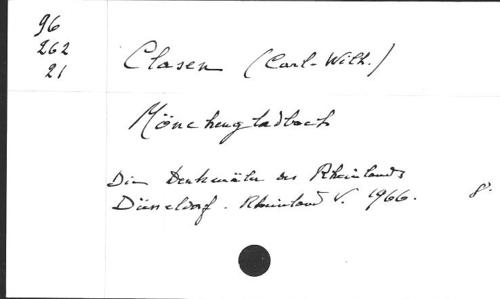 96
262
21
Clasen (Carl-Wilh.)
Mönchengladbach
Die Denkmäler des Rheinlands
Düsseldorf. Rheinland V. 1966. 8°.